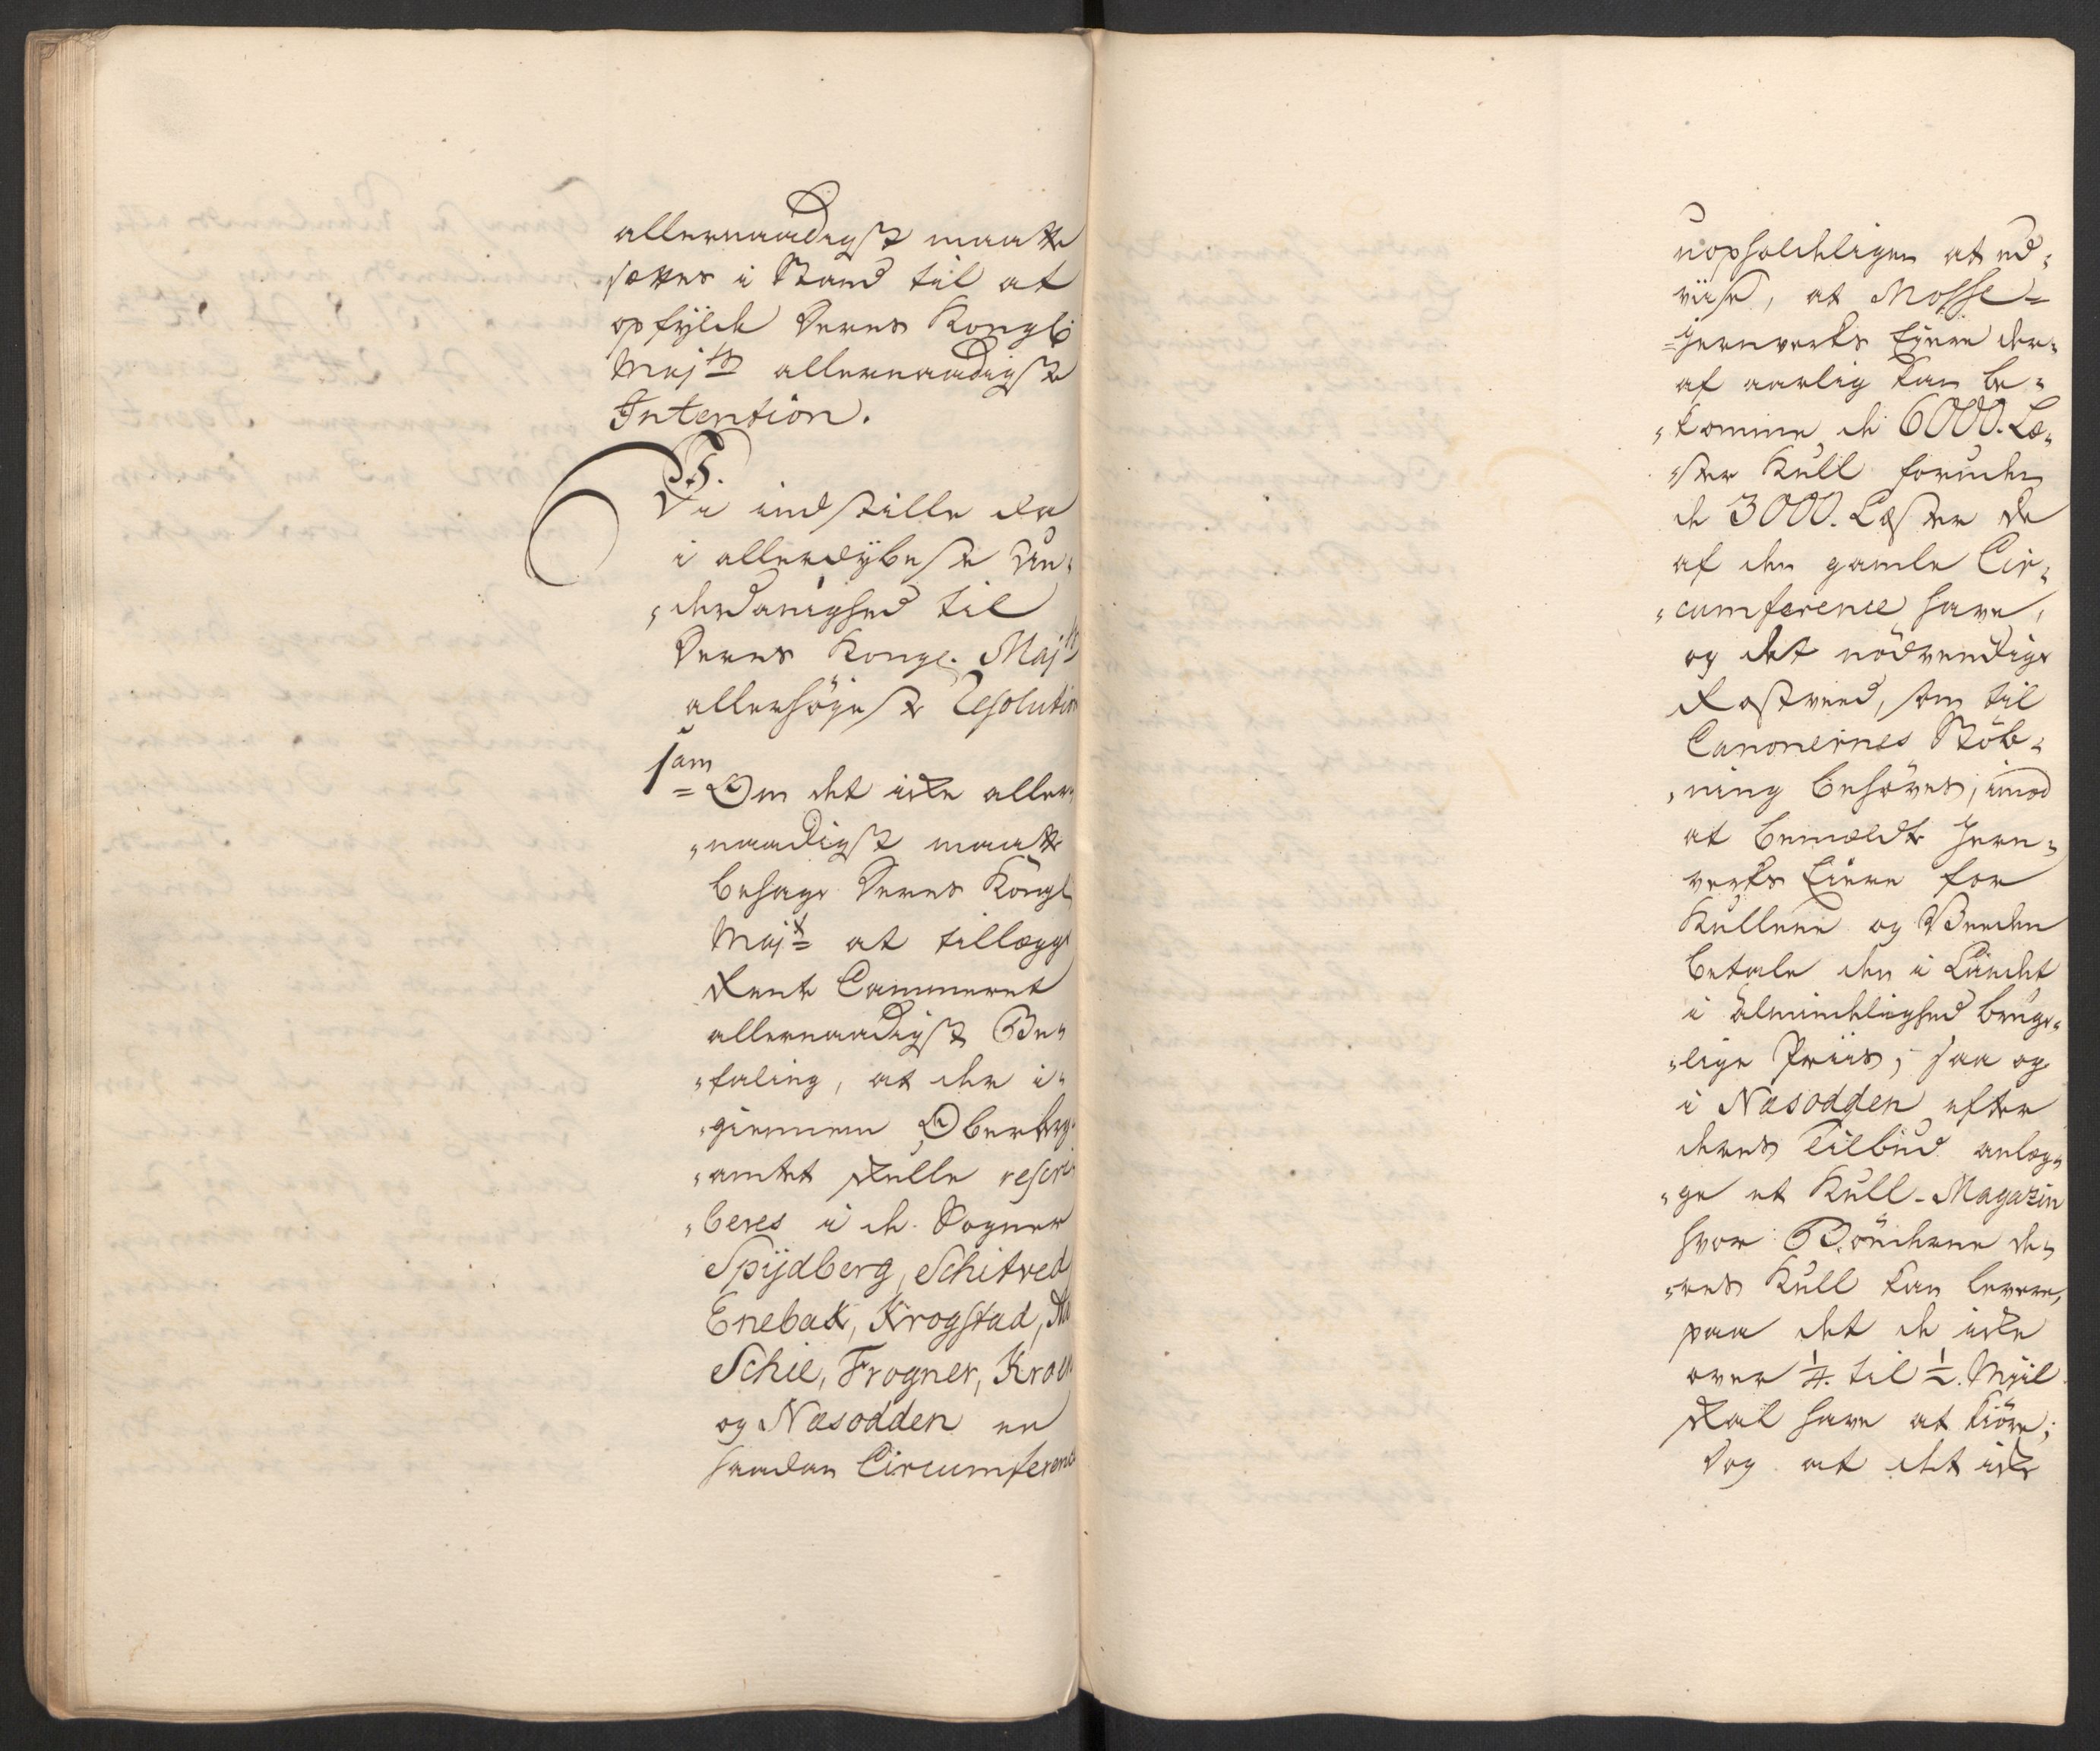 allernaadigst maatte
sættes i Stand til at
opfylde Deres Kongl:
Majts allernaadigste
Intention.
Vi indstille da
i allerdybeste Un-
-derdanighed til
Deres Kongl. Majts
allerhöyeste Resolution
1am
= Om det icke aller-
-naadigst maatte
behage Deres Kongl
Majt at tillægge
Rente Cammeret
allernaadigst Be-
-faling, at der i-
-giennem Oberberg-
-amtet skulle rescri-
-beres i de Sogner
Spydberg, Schitved
Enebak, Krogstad,
Schie, Frogner, Kroer
og Næsodden en
saadan Circumference
uopholdeligen at ud-
viise, at Mosse-
=Jernverks Eyere der-
af aarlig kan be-
-komme de 6000. Læ-
-ster Kull foruden
de 3000. Læster de
af den gamle Cir-
-cumference have,
og det nödvendige
Rostveed, som til
Canonernes Stöb-
-ning behöves, imod
at bemeldte Jern-
verks Eiere for
Kullene og Veeden
betale den i Landet
i Almindelighed bruge-
-lige Priis; saa og
i Næsodden efter
deres Tilbud anlæg-
-ge et Kull-Magazin
hvor Bönderne de-
-res Kull kan levere,
paa det de icke
over 1/4. til 1/2. Miil
skal have at kiöre;
Dog at det icke